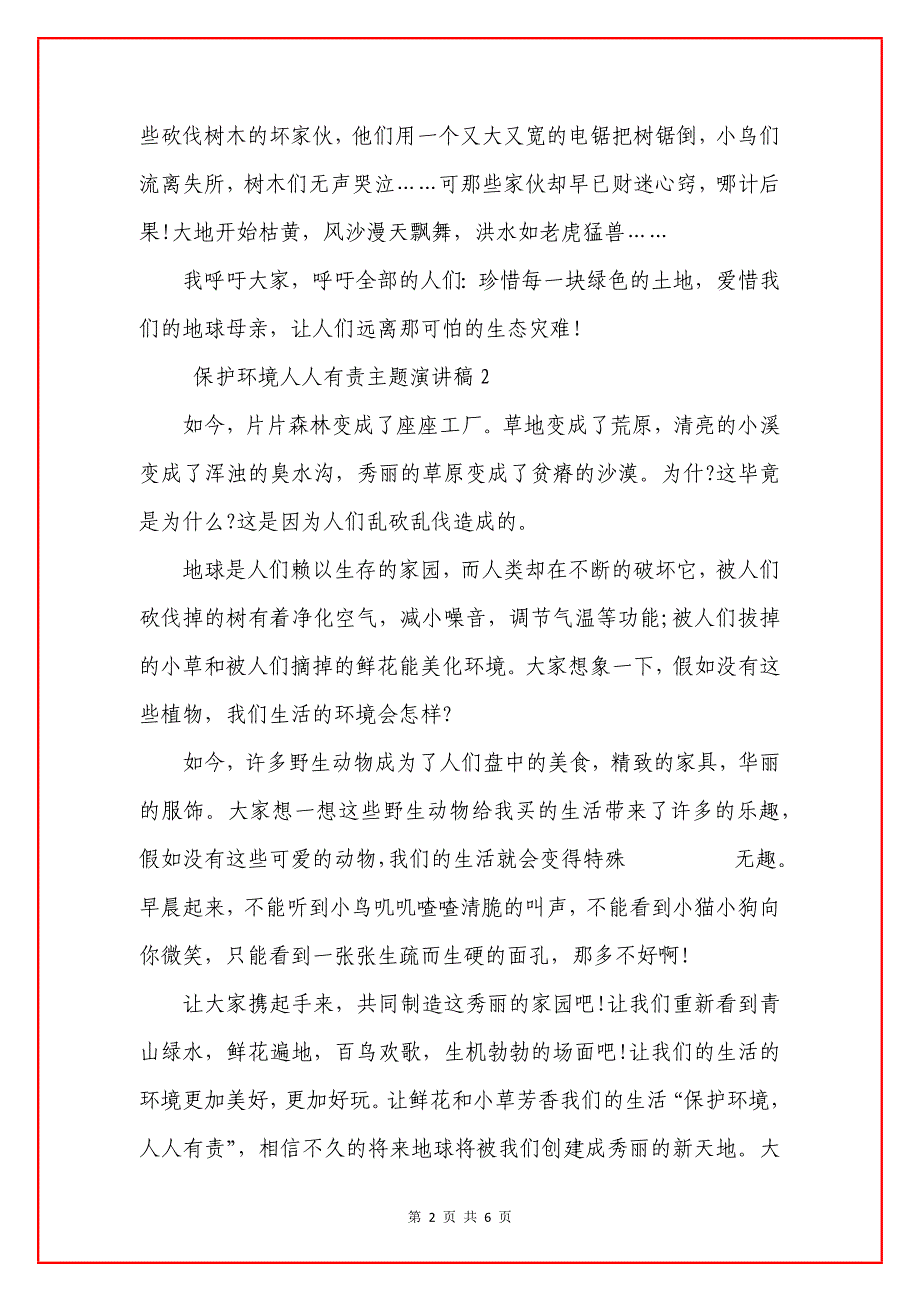 些砍伐树木的坏家伙，他们用一个又大又宽的电锯把树锯倒，小鸟们
流离失所，树木们无声哭泣……可那些家伙却早已财迷心窍，哪计后
果!大地开始枯黄，风沙漫天飘舞，洪水如老虎猛兽……
我呼吁大家，呼吁全部的人们: 珍惜每一块绿色的土地，爱惜我
们的地球母亲，让人们远离那可怕的生态灾难!
保护环境人人有责主题演讲稿 2
如今，片片森林变成了座座工厂。草地变成了荒原，清亮的小溪
变成了浑浊的臭水沟，秀丽的草原变成了贫瘠的沙漠。为什?这毕竟
是为什么?这是因为人们乱砍乱伐造成的。
地球是人们赖以生存的家园，而人类却在不断的破坏它，被人们
砍伐掉的树有着净化空气，减小噪音，调节气温等功能;被人们拔掉
的小草和被人们摘掉的鲜花能美化环境。大家想象一下，假如没有这
些植物，我们生活的环境会怎样?
如今，许多野生动物成为了人们盘中的美食，精致的家具，华丽
的服饰。大家想一想这些野生动物给我买的生活带来了许多的乐趣，
假如没有这些可爱的动物，我们的生活就会变得特殊 无趣。
早晨起来，不能听到小鸟叽叽喳喳清脆的叫声，不能看到小猫小狗向
你微笑，只能看到一张张生疏而生硬的面孔，那多不好啊!
让大家携起手来，共同制造这秀丽的家园吧!让我们重新看到青
山绿水，鲜花遍地，百鸟欢歌，生机勃勃的场面吧!让我们的生活的
环境更加美好，更加好玩。让鲜花和小草芳香我们的生活“保护环境，
人人有责”，相信不久的将来地球将被我们创建成秀丽的新天地。大
第 2 页 共 6 页